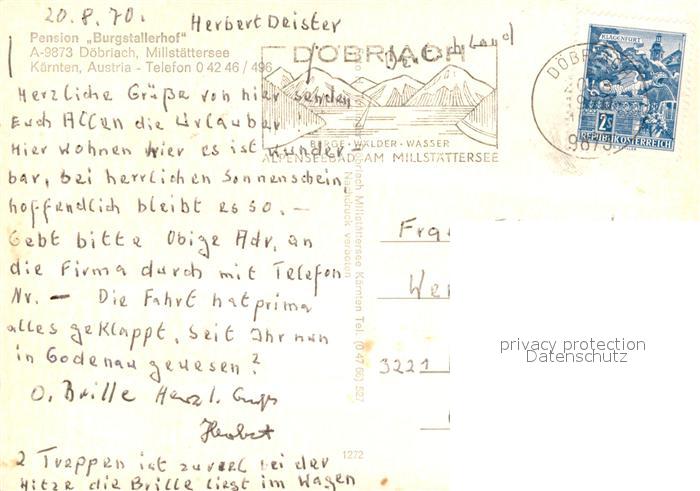 20.8.70.
Herbert Deister
Pension „Burgstallerhof"
A-9873 Döbriach, Millstättersee
Kärnten, Austria - Telefon 0 42 46 / 496
Herzliche Grüße von hier senden
Euch Allen die Urlauber
Hier wohnen wir es ist wunder-
bar, bei herrlichen Sonnenschein
hoffendlich bleibt es so. —
Gebt bitte Obige Adr. an
die Firma durch mit Telefon
Nr. — Die Fahrt hat prima
alles geklappt, Seit Ihr nun
in Godenau gewesen?
O. Brille Herzl. Gruß
Herbert
2 Treppen ist zuviel bei der
Hitze die Brille liegt im Wagen
DÖBRIACH
BERGE · WÄLDER · WASSER
ALPENSEEBAD AM MILLSTÄTTERSEE
Deutschland
KLAGENFURT
2S
REPUBLIK ÖSTERREICH
DÖB
9873
Döbriach Millstättersee Kärnten Tel. (0 47 66) 527
Nachdruck verboten
Fra
We
3221
1272
privacy protection
Datenschutz